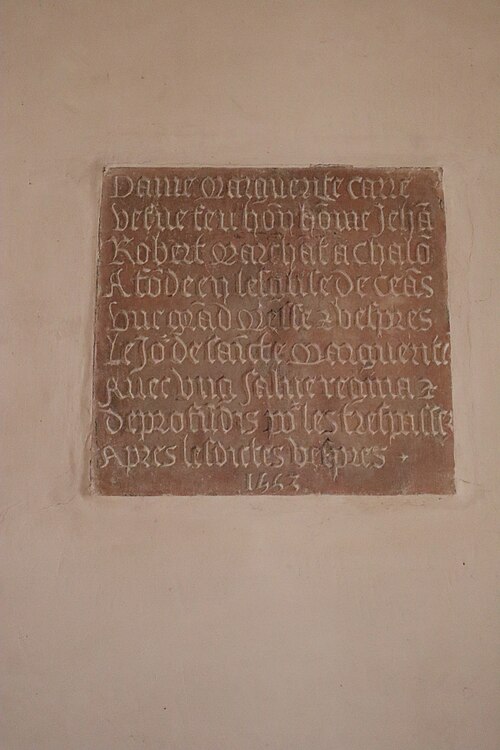 Dame Marguerite carre
vefue feu hōn hōme Jehā
Robert marchāt a Chalō
A fōde en lesglise de ceās
vne grād messe ⁊ vespres
Le Jor de saīcte marguerite
Auec vng salue regina ⁊
de profūdis pr les trespassez
Apres lesdictes vespres
1553